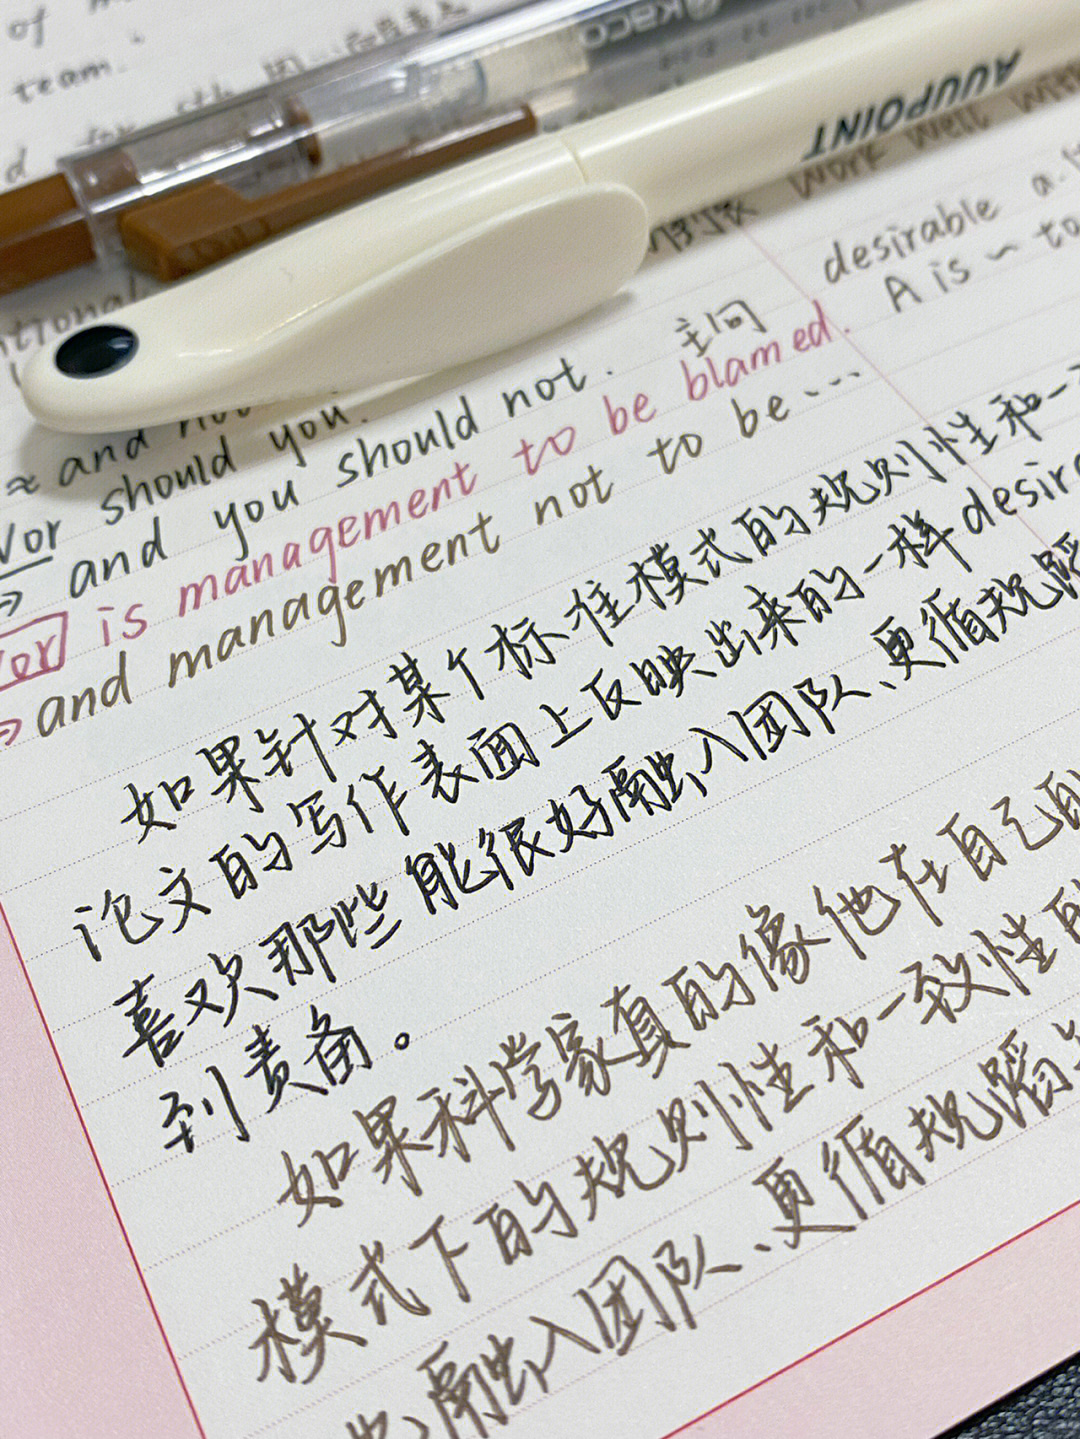 of
team.
kaco
AUUPOINT
work well with
desirable a.
A is ~ to
主同
≈ and not
Nor should you.
→ and you should not.
Nor is management to be blamed.
→ and management not to be...
如果针对某个标准模式的规则性和一
论文的写作表面上反映出来的一样desira
喜欢那些能很好融入团队、更循规蹈
到责备。
如果科学家真的像他在自己的
模式下的规则性和一致性的
融入团队、更循规蹈